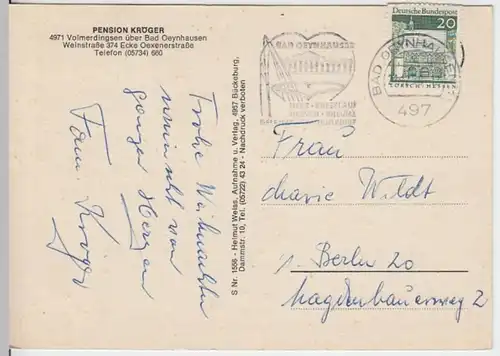 PENSION KRÜGER
4971 Volmerdingsen über Bad Oeynhausen
Weinstraße 374 Ecke Oexenerstraße
Telefon (05734) 660
Frohe Weihnachten
wünscht von
ganzen Herzen
Fam. Krüger
S Nr. 1556 - Helmut Welss, Aufnahme u. Verlag, 4967 Bückeburg,
Dammstr. 10, Tel. (05722) 43 24 - Nachdruck verboten
BAD OEYNHAUSEN
BAD OEYNHAUSEN
497
Deutsche Bundespost
20
LORSCH/HESSEN
Frau
Marie Wildt
1 Berlin 20
Magdenbauerweg 2